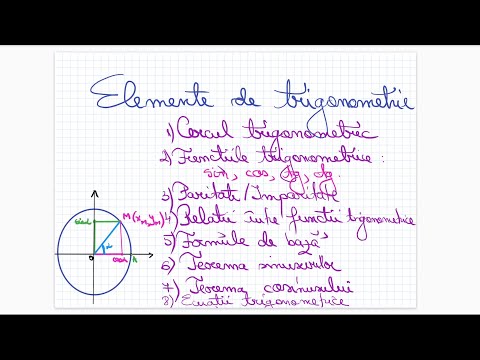 Elemente de trigonometrie
1) Cercul trigonometric
2) Funcțiile trigonometrice :
sin, cos, tg, ctg.
3) Paritate/Imparitate
4) Relații între funcții trigonometrice
5) Formule de bază
6) Teorema sinusurilor
7) Teorema cosinusului
8) Ecuații trigonometrice
sinα
M
α
O
cosα
A